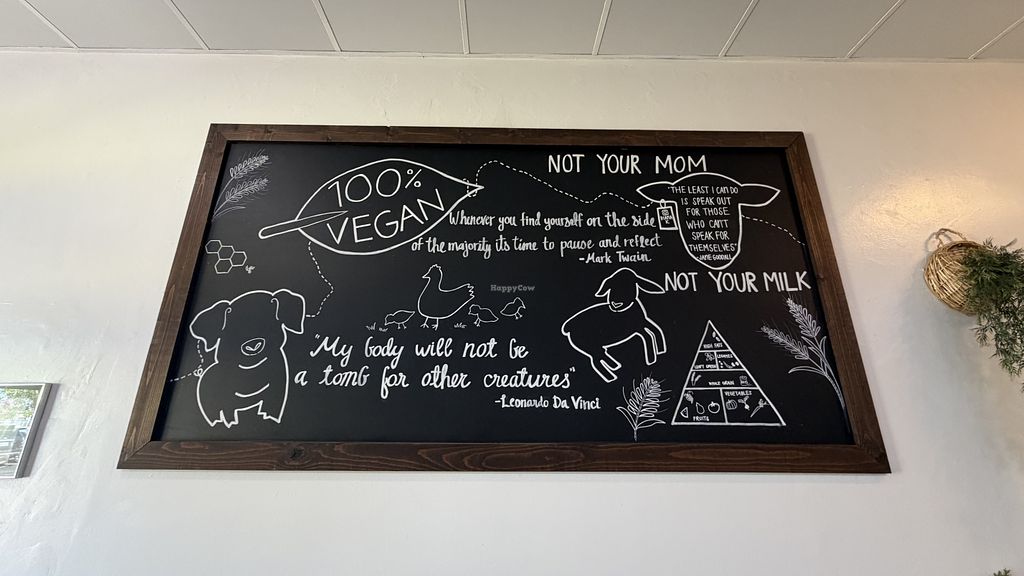 100%
VEGAN
NOT YOUR MOM
Whenever you find yourself on the side
of the majority its time to pause and reflect
-Mark Twain
"THE LEAST I CAN DO
IS SPEAK OUT
FOR THOSE
WHO CAN'T
SPEAK FOR
THEMSELVES"
-JANE GOODALL
NOT YOUR MILK
HappyCow
"My body will not be
a tomb for other creatures"
-Leonardo Da Vinci
HIGH FATS
LEGUMES
LEAFY GREENS
WHOLE GRAINS
VEGETABLES
FRUITS